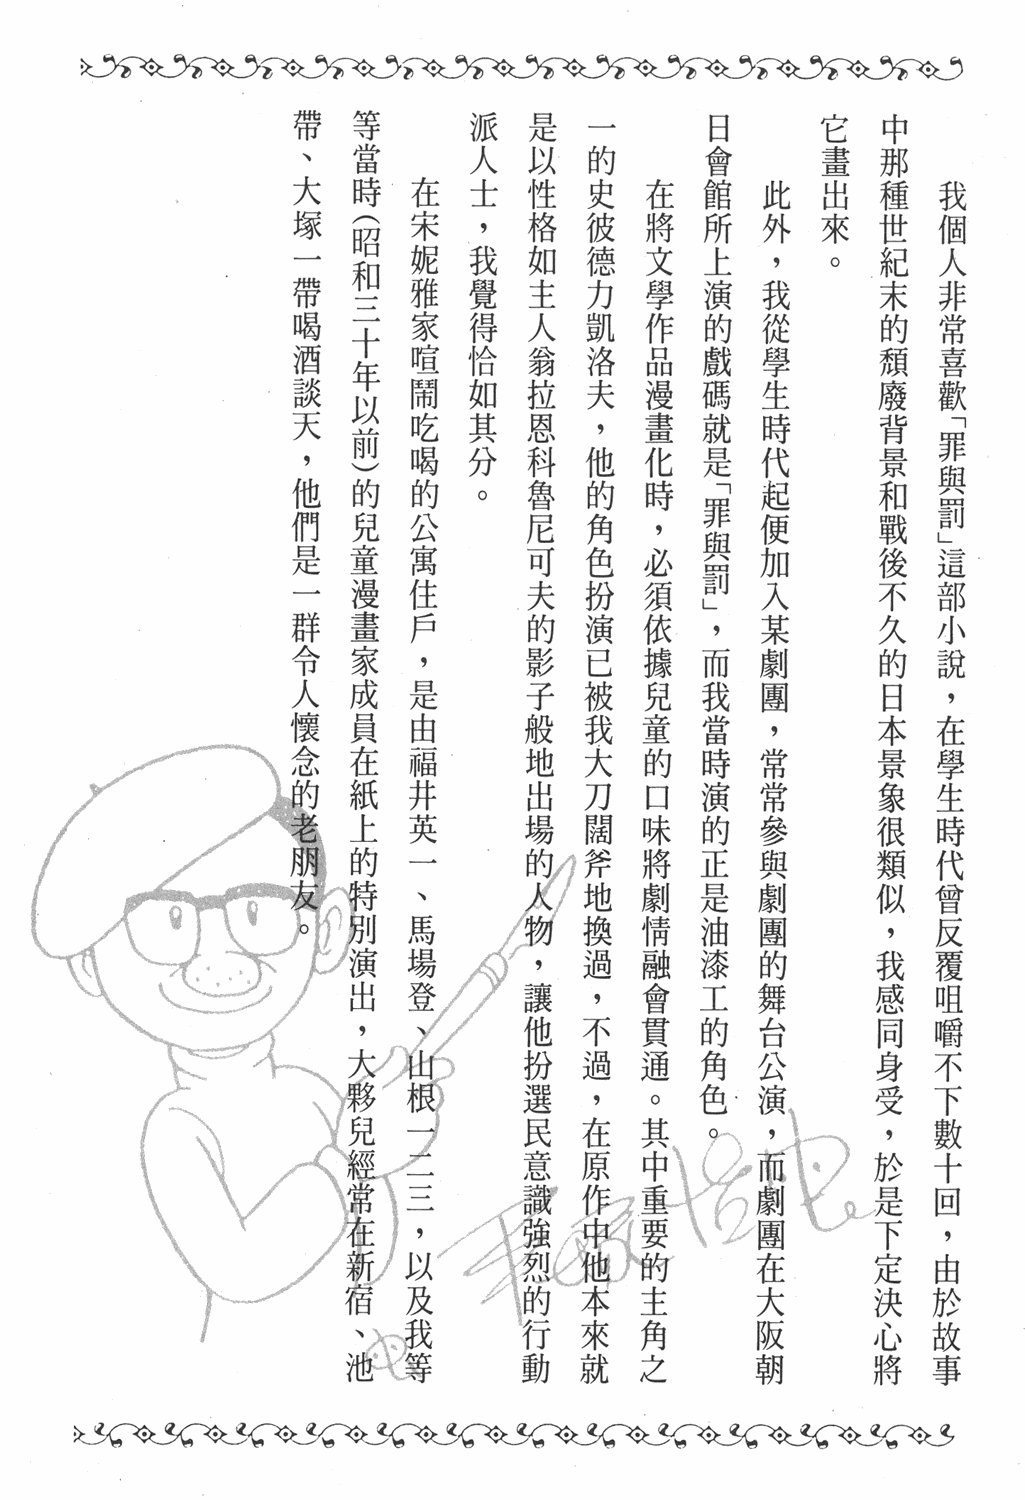 我個人非常喜歡「罪與罰」這部小說，在學生時代曾反覆咀嚼不下數十回，由於故事
中那種世紀末的頹廢背景和戰後不久的日本景象很類似，我感同身受，於是下定決心將
它畫出來。
此外，我從學生時代起便加入某劇團，常常參與劇團的舞台公演，而劇團在大阪朝
日會館所上演的戲碼就是「罪與罰」，而我當時演的正是油漆工的角色。
在將文學作品漫畫化時，必須依據兒童的口味將劇情融會貫通。其中重要的主角之
一的史彼德力凱洛夫，他的角色扮演已被我大刀闊斧地換過，不過，在原作中他本來就
是以性格如主人翁拉恩科魯尼可夫的影子般地出場的人物，讓他扮選民意識強烈的行動
派人士，我覺得恰如其分。
在宋妮雅家喧鬧吃喝的公寓住戶，是由福井英一、馬場登、山根一二三，以及我等
等當時(昭和三十年以前)的兒童漫畫家成員在紙上的特別演出，大夥兒經常在新宿、池
帶、大塚一帶喝酒談天，他們是一群令人懷念的老朋友。
手塚治虫
虫